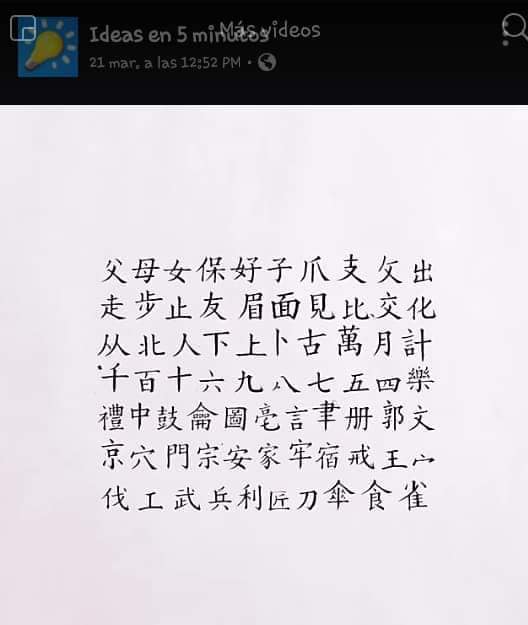 Ideas en 5 minutos
Más videos
21 mar. a las 12:52 PM •
父母女保好子爪支攵出
走步止友眉面見比交化
从北人下上卜古萬月計
千百十六九八七五四樂
禮中鼓龠圖亳言聿册郭文
京穴門宗安家牢宿戒王宀
伐工武兵利匠刀傘食雀